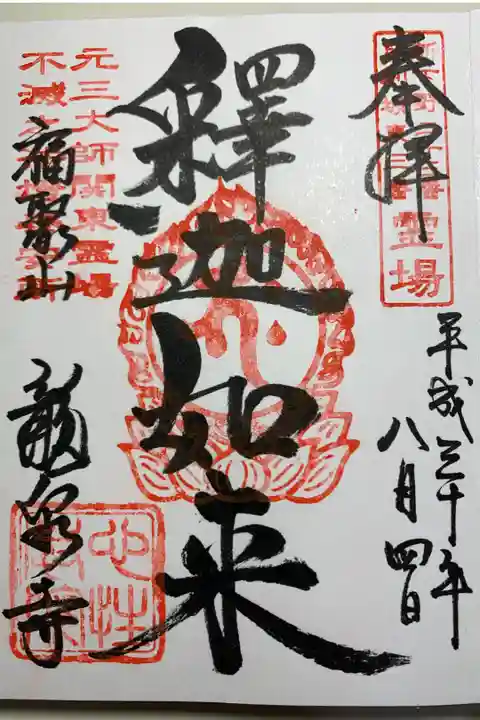 奉拝
霊場
平成三十年
八月四日
釋迦如来
元三大師関東霊場
不滅
福聚山
龍泉寺